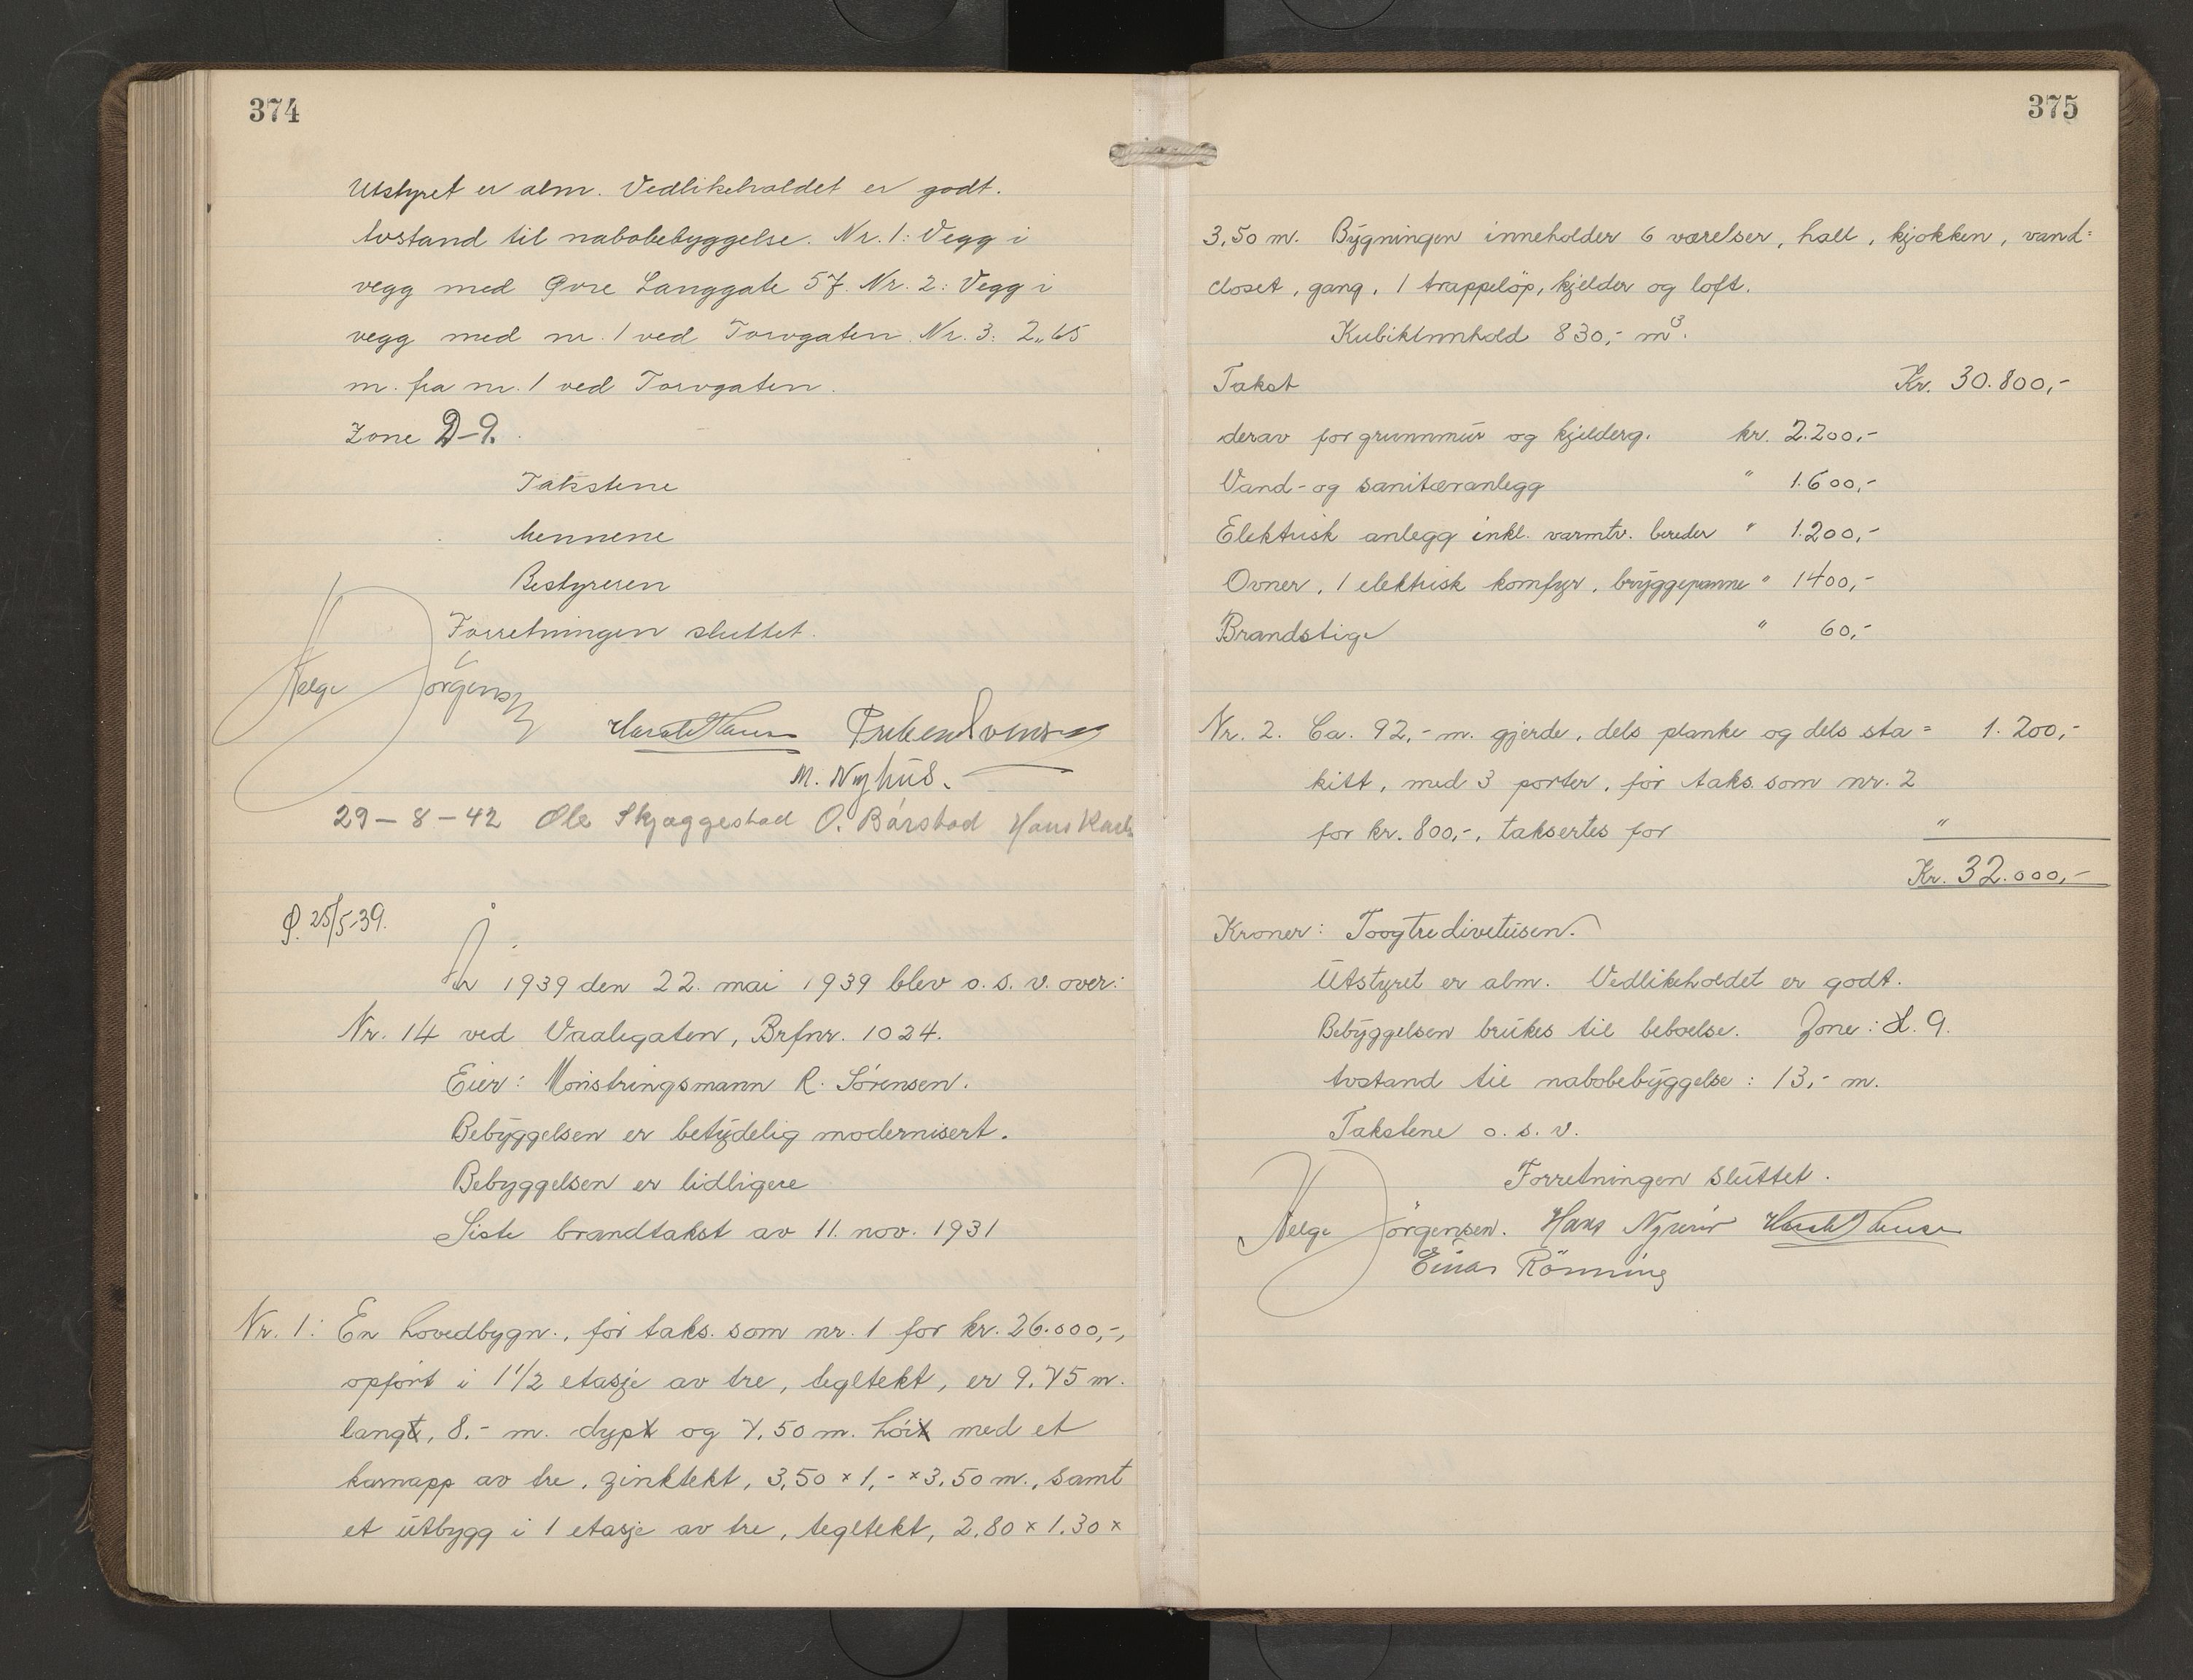 374
Utstyret er alm. Vedlikeholdet er godt.
Avstand til nabobebyggelse. Nr. 1: Vegg i
vegg med Øvre Langgate 57. Nr. 2: Vegg i
vegg med nr. 1 ved Torvgaten. Nr. 3: 2,,65
m. fra nr. 1 ved Torvgaten.
Zone D-9.
Takstene
Mennene
Bestyreren
Forretningen sluttet.
Helge Jörgensen
M. Nyhus.
29-8-42 Ole Skjæggestad O. Bárstad Hans
P. 25/5-39.
År 1939 den 22. mai 1939 blev o.s.v. over:
Nr. 14 ved Vaalegaten, Brfnr. 1024.
Eier: Mönstringsmann R. Sörensen.
Bebyggelsen er betydelig modernisert.
Bebyggelsen er lidligere
Siste brandtakst av 11. nov. 1931
Nr. 1: En hovedbygn., för taks. som nr. 1 for kr. 26.000,-,
opfört i 1 1/2 etasje av tre, tegltekt, er 9.75 m.
langt, 8.- m. dypt og 7.50 m. höit med et
karnapp av tre, zinktekt, 3,50 x 1,- x 3,50 m., samt
et utbygg i 1 etasje av tre, tegltekt, 2.80 x 1.30 x
375
3,50 m. Bygningen inneholder 6 værelser, hall, kjøkken, vand=
closet, gang, 1 trappeløp, kjelder og loft.
Kubikinnhold 830,- m3.
Takst Kr. 30.800,-
derav for grunnmur og kjelderg. kr. 2.200,-
Vand- og sanitæranlegg " 1.600,-
Elektrisk anlegg inkl. varmtv. bereder " 1.200,-
Ovner, 1 elektrisk komfyr, bryggepanne " 1400,-
Brandstige " 60,-
Nr. 2. Ca. 92,- m. gjerde, dels planke og dels sta= 1.200,-
kitt, med 3 porter, för taks. som nr. 2
for kr. 800,-, taksertes for "
Kr. 32.000,-
Kroner: Toogtredivetusen.
Utstyret er alm. Vedlikeholdet er godt.
Bebyggelsen brukes til beboelse. Zone: d. 9.
Avstand til nabobebyggelse: 13,- m.
Takstene o.s.v.
Forretningen sluttet.
Helge Jörgensen. Hans
Einar Rönning